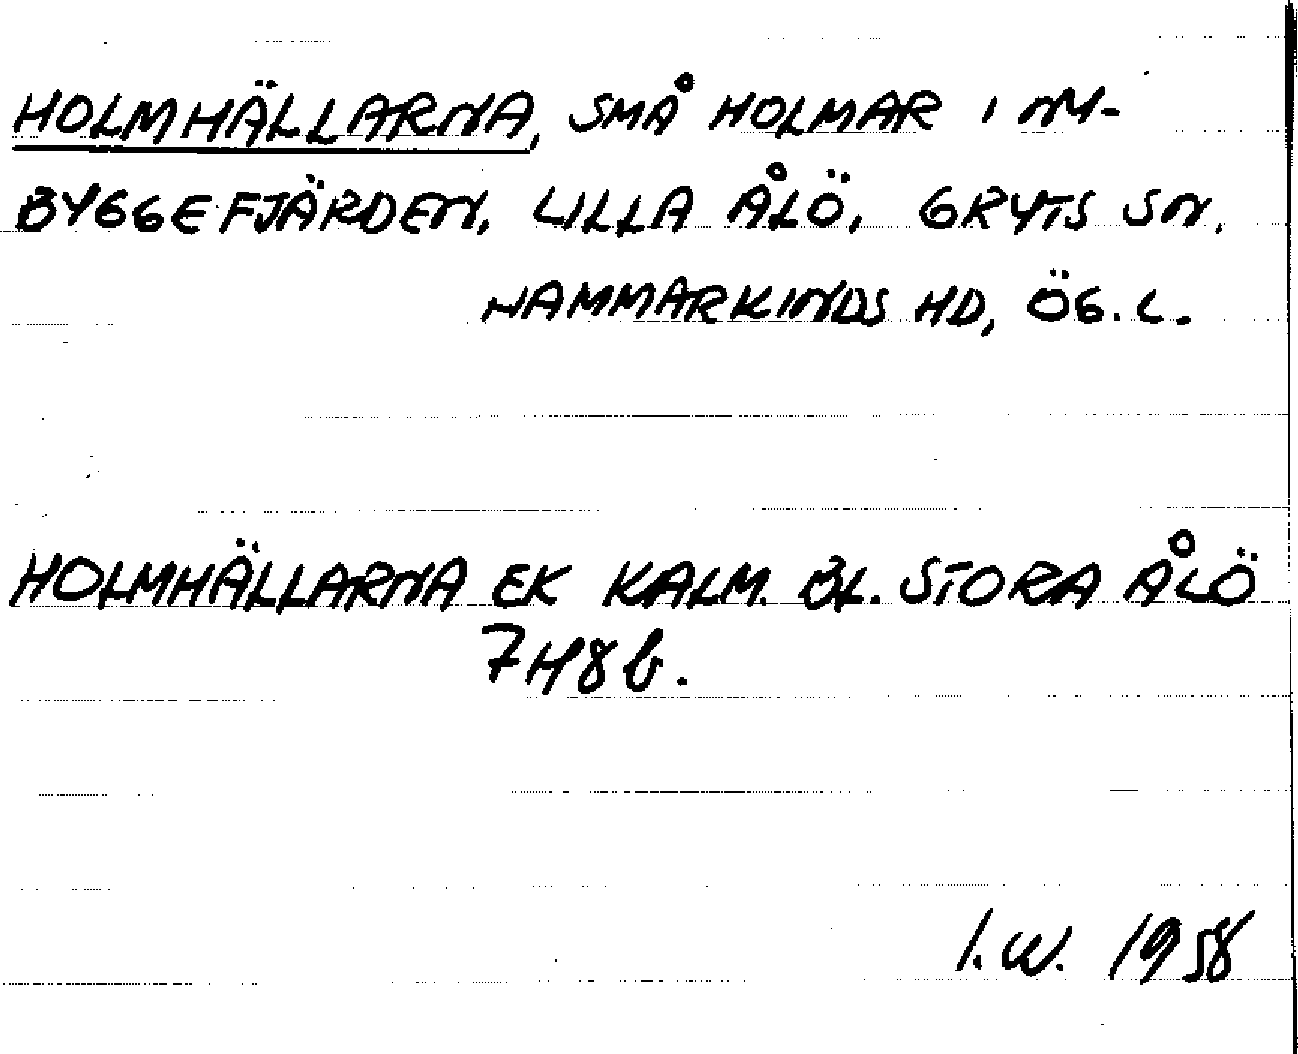 HOLMHÄLLARNA, SMÅ HOLMAR I NY-
BYGGEFJÄRDEN, LILLA ÅLÖ, GRYTS SN,
HAMMARKINDS HD, ÖG. L.
HOLMHÄLLARNA EK KALM. BL. STORA ÅLÖ
7H8b.
I.W. 1958